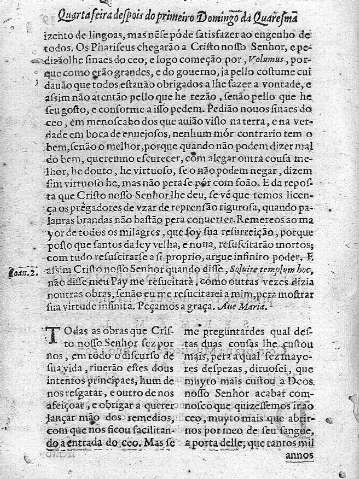 Quarta feira despois do primeiro Domingo da Quaresma
izento de lingoas, mas nẽse póde satisfazer ao engenho de
todos. Os Phariseus chegarão a Cristo nosso Senhor, e pe-
dirãolhe sinaes do ceo, e logo começão por, Volumus, por-
que como erão grandes, e do governo, ja pello costume cui
dauão que todos estauão obrigados a lhe fazer a vontade, e
assim não atentão pello que he rezão, senão pello que he
seu gosto, e conforme a isso pedem. Pedião nouos sinaes do
ceo, em menoscabo dos que auião visto na terra, e na ver-
dade em boca de enuejosos, nenhum mór contrario tem o
bem, senão o melhor, porque quando não podem dizer mal
do bem, querem no escurecer, com alegar outra cousa me-
lhor, he douto, he virtuoso, se o não podem negar, dizem
sim virtuoso he, mas não pera se pór com foão. E da repos-
ta que Cristo nosso Senhor lhe deu, se vé que temos licen-
ça os prégadores de vzar de reprensão rigurosa, quando pa-
lauras brandas não bastão pera conuerter. Remeteos ao ma
yor de todos os milagres, que foy sua resurreição, porque
posto que santos da ley velha, e noua, resucitarão mortos;
com tudo resuscitarse a si proprio, argue infinito poder. E
Ioan. 2.
assim Cristo nosso Senhor quando disse, Soluite templum hoc,
não disse meu Pay me resucitará, como outras vezes dizia
noutras obras, senão eu me resucitarei a mim, pera mostrar
sua virtude infinita. Peçamos a graça. Aue Maria.
TOdas as obras que Cris-
to nosso Senhor fez por
nos, em todo o discurso de
sua vida, tiuerão estes dous
intentos principaes, hum de
nos resgatar, e outro de nos
afeiçoar, e obrigar a querer
lançar mão dos remedios,
com que nos ficou facilitan-
do a entrada do ceo. Mas se
me preguntardes qual des-
tas duas cousas lhe custou
mais, pera a qual fez mayo-
res despezas, diruosei, que
muyto mais custou a Deos
nosso Senhor acabar com-
nosco que quizessemos ir ao
ceo, muyto mais que abrir-
nos por meo de seu sangue,
a porta delle; que tantos mil
annos